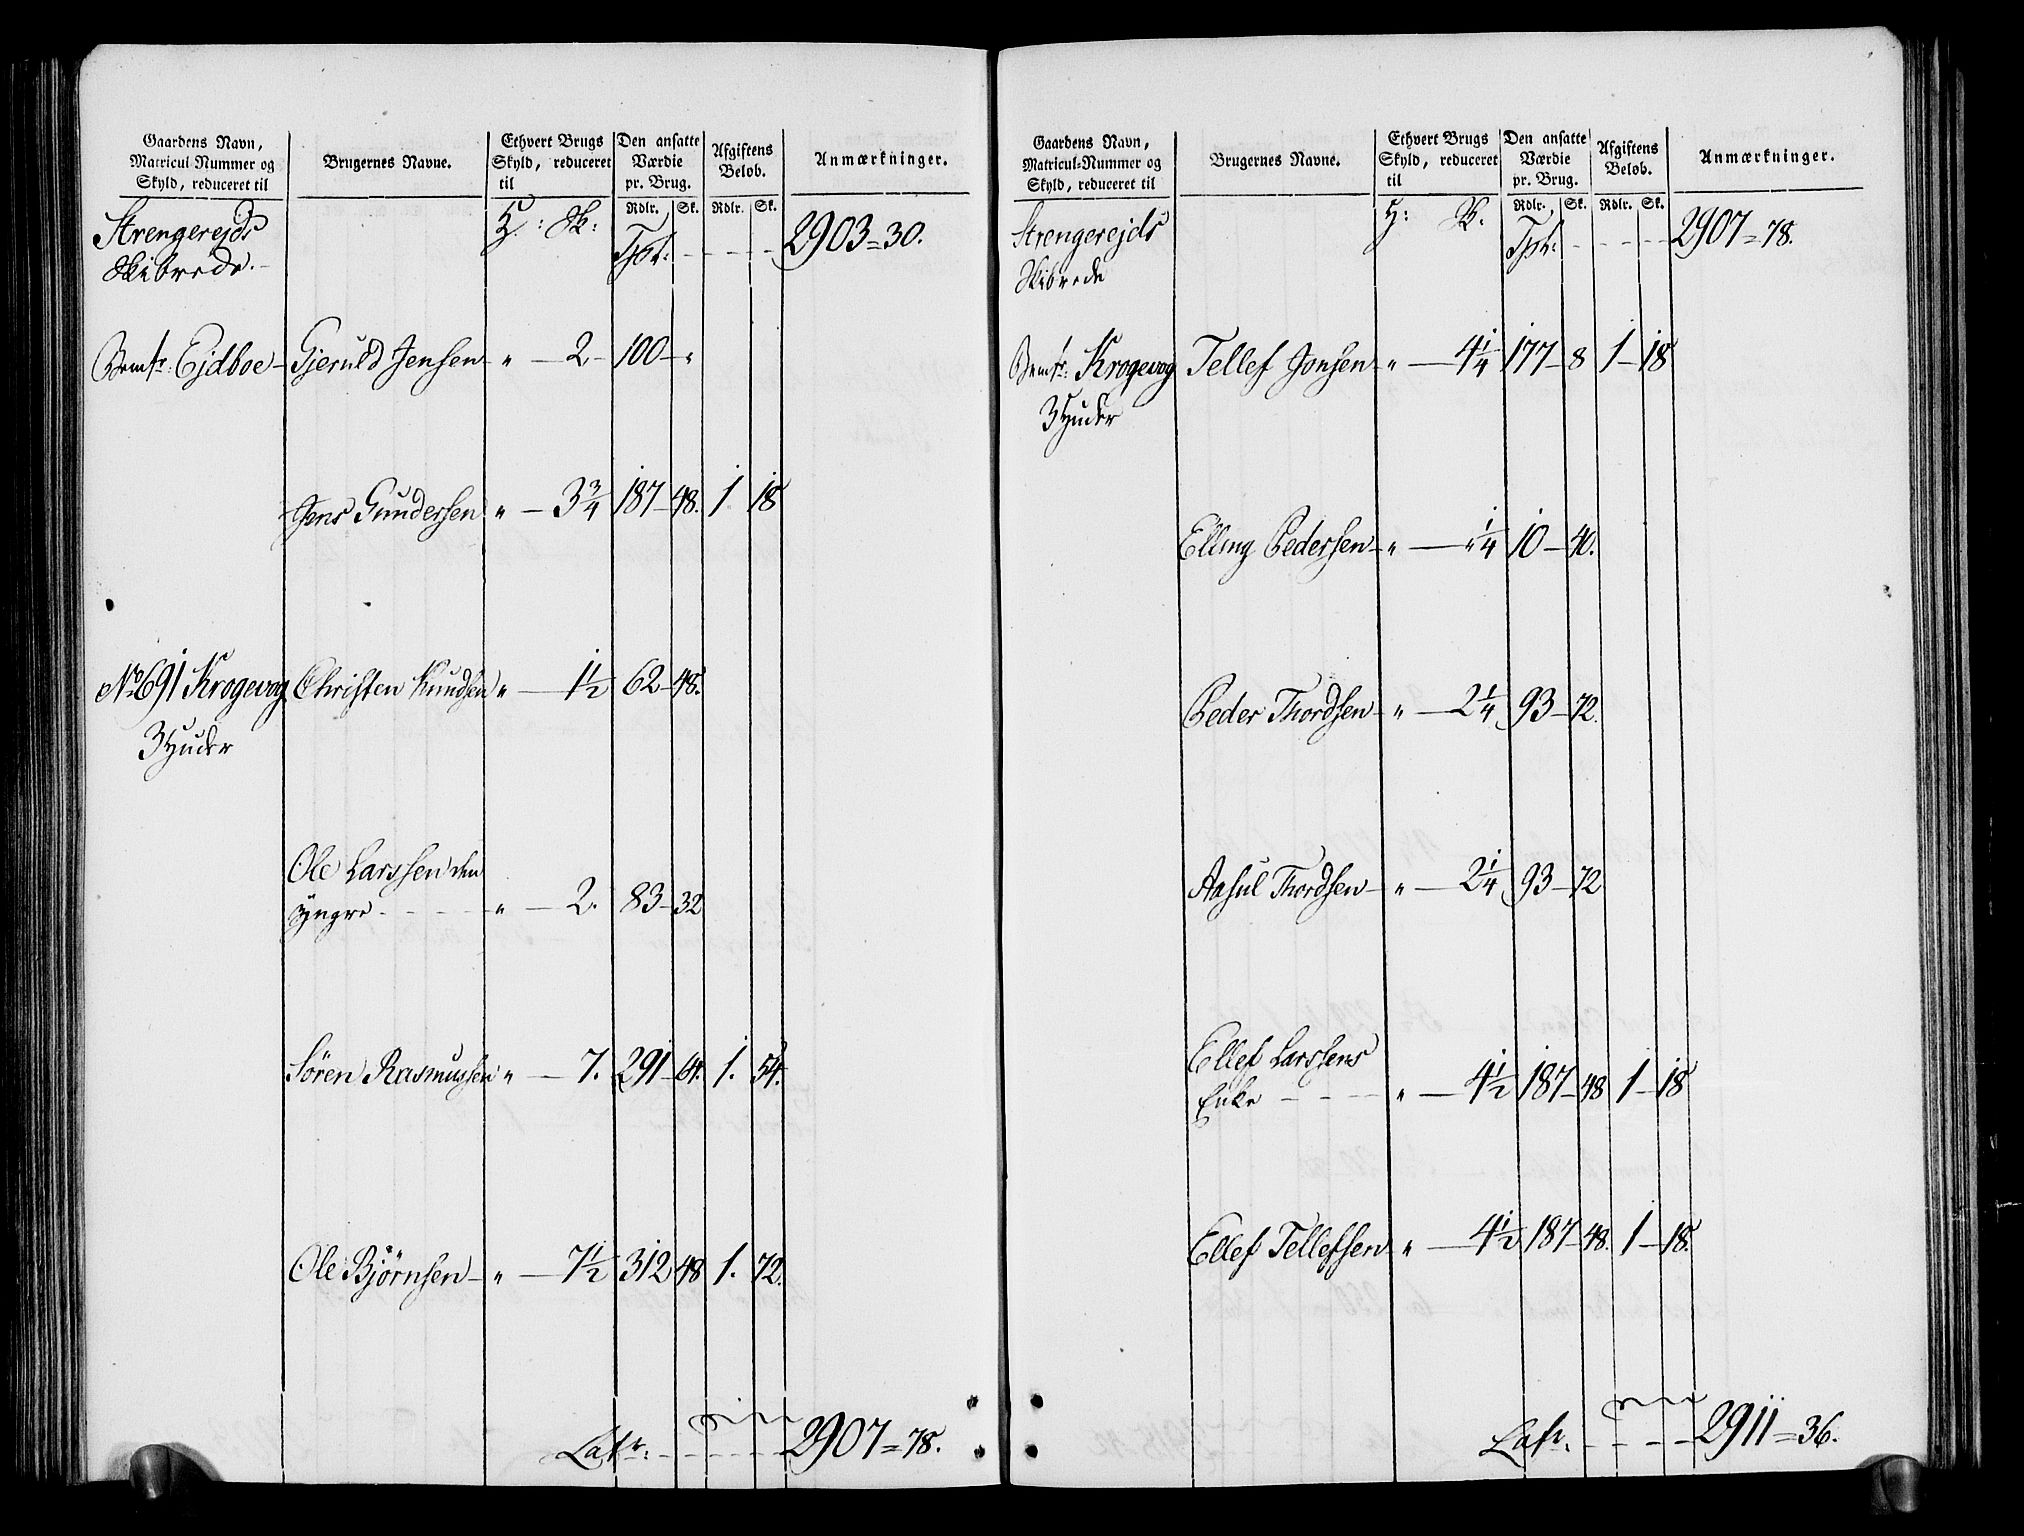 Gaardens Navn, Matricul-Nummer og Skyld, reduceret til
Brugernes Navne.
Ethvert Brugs Skyld, reduceret til
Den ansatte Værdie pr. Brug.
Afgiftens Beløb.
Anmærkninger.
Rdlr. Sk. Rdlr. Sk.
Strengereids H: Sk: Tpt: - - - - 2903=30.
Skibrede.
Bemte: Ejdboe Gjeruld Jensen " 2 100 "
Jens Gundersen " 3 3/4 187 48. 1 18
No 691 Krogevog Christen Knudsen " 1 1/2 62 48.
3 Huder
Ole Larssen den
yngre " 2. 83 32
Søren Rasmussen " 7. 291 64. 1. 54.
Ole Bjørnsen " 7 1/2 312 48 1. 72.
Latr: - - - - 2907=78.
Gaardens Navn, Matricul-Nummer og Skyld, reduceret til
Brugernes Navne.
Ethvert Brugs Skyld, reduceret til
Den ansatte Værdie pr. Brug.
Afgiftens Beløb.
Anmærkninger.
Rdlr. Sk. Rdlr. Sk.
Strengerejds H: Sk. Tpt: - - - - 2907=78.
Skibrede
Bemte: Krogevog Tellef Jonsen " 4 1/4 177 8 1 18
3 Huder
Elling Pedersen " " 1/4 10 40.
Peder Thordsen " 2 1/4 93 72.
Aasul Thordsen " 2 1/4 93 72
Ellef Larssens
Enke " 4 1/2 187 48 1 18
Ellef Tellefsen " 4 1/2 187 48. 1 18.
Latr. - - - - 2911=36.